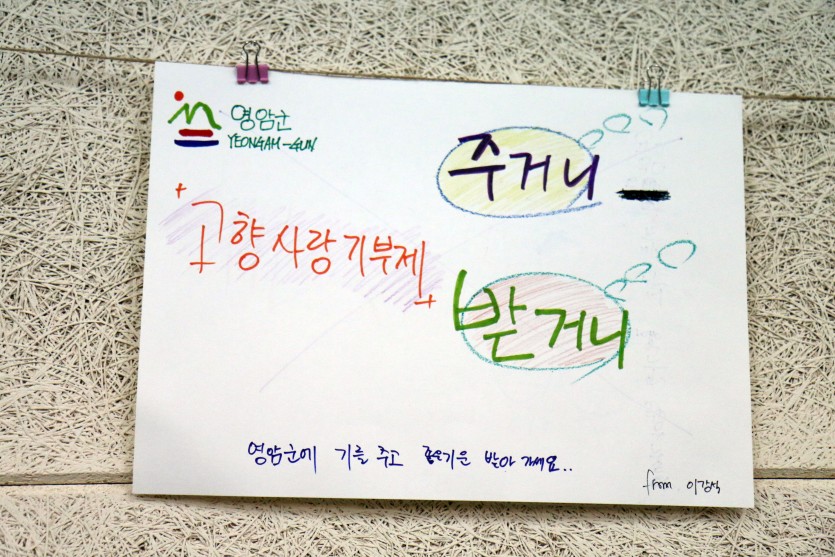 영암군
YEONGAM-GUN
고향사랑기부제
주거니
받거니
영암군에 기를 주고 좋은기운 받아 가세요..
from 이강석